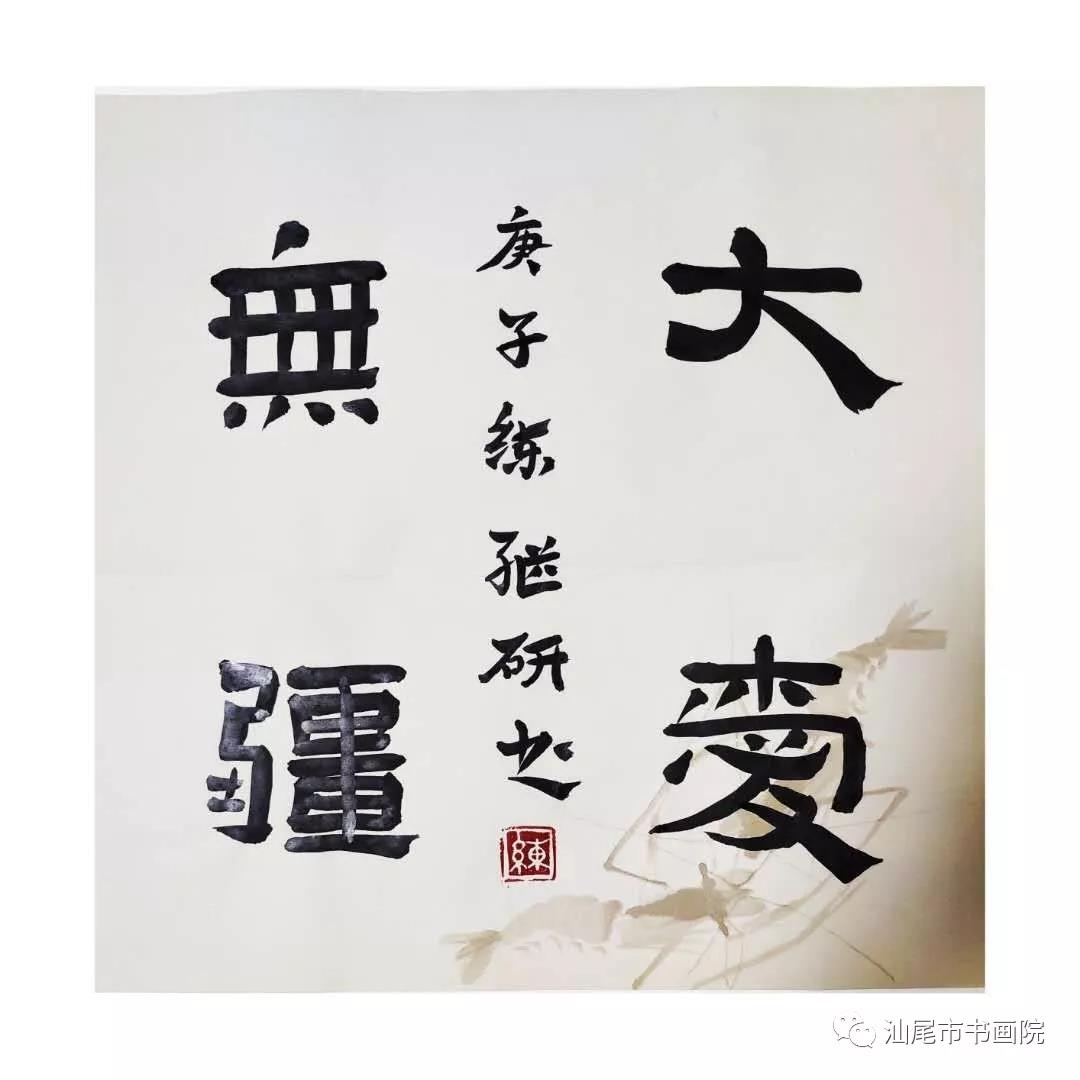 大愛
無疆
庚子练继研书
練
汕尾市书画院